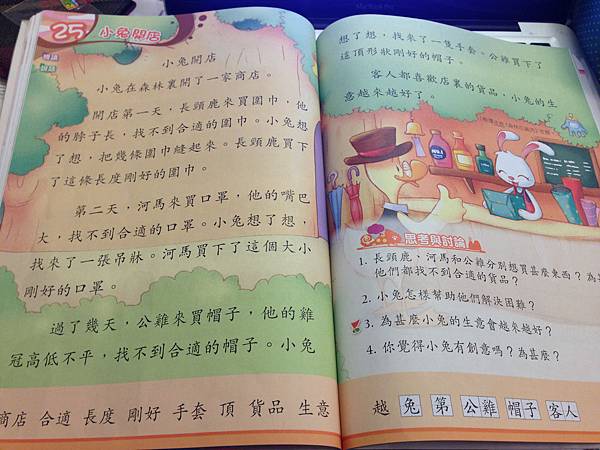 25 小兔開店
小兔開店
小兔在森林裏開了一家商店。
開店第一天，長頸鹿來買圍巾，他
的脖子長，找不到合適的圍巾。小兔想
了想，把幾條圍巾縫起來。長頸鹿買下
了這條長度剛好的圍巾。
第二天，河馬來買口罩，他的嘴巴
大，找不到合適的口罩。小兔想了想，
找來了一張吊牀。河馬買下了這個大小
剛好的口罩。
過了幾天，公雞來買帽子，他的雞
冠高低不平，找不到合適的帽子。小兔
商店 合適 長度 剛好 手套 頂 貨品 生意
想了想，找來了一隻手套。公雞買下了
這頂形狀剛好的帽子。
客人都喜歡店裏的貨品，小兔的生
意越來越好了。
思考與討論
1. 長頸鹿、河馬和公雞分別想買甚麼東西？為甚
他們都找不到合適的貨品？
2. 小兔怎樣幫助他們解決困難？
3. 為甚麼小兔的生意會越來越好？
4. 你覺得小兔有創意嗎？為甚麼？
越 兔 第 公雞 帽子 客人